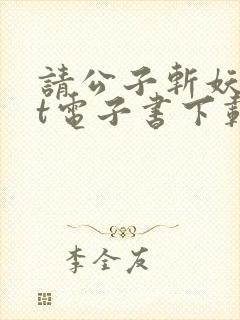 請公子斬妖
t電子書下載
李全友